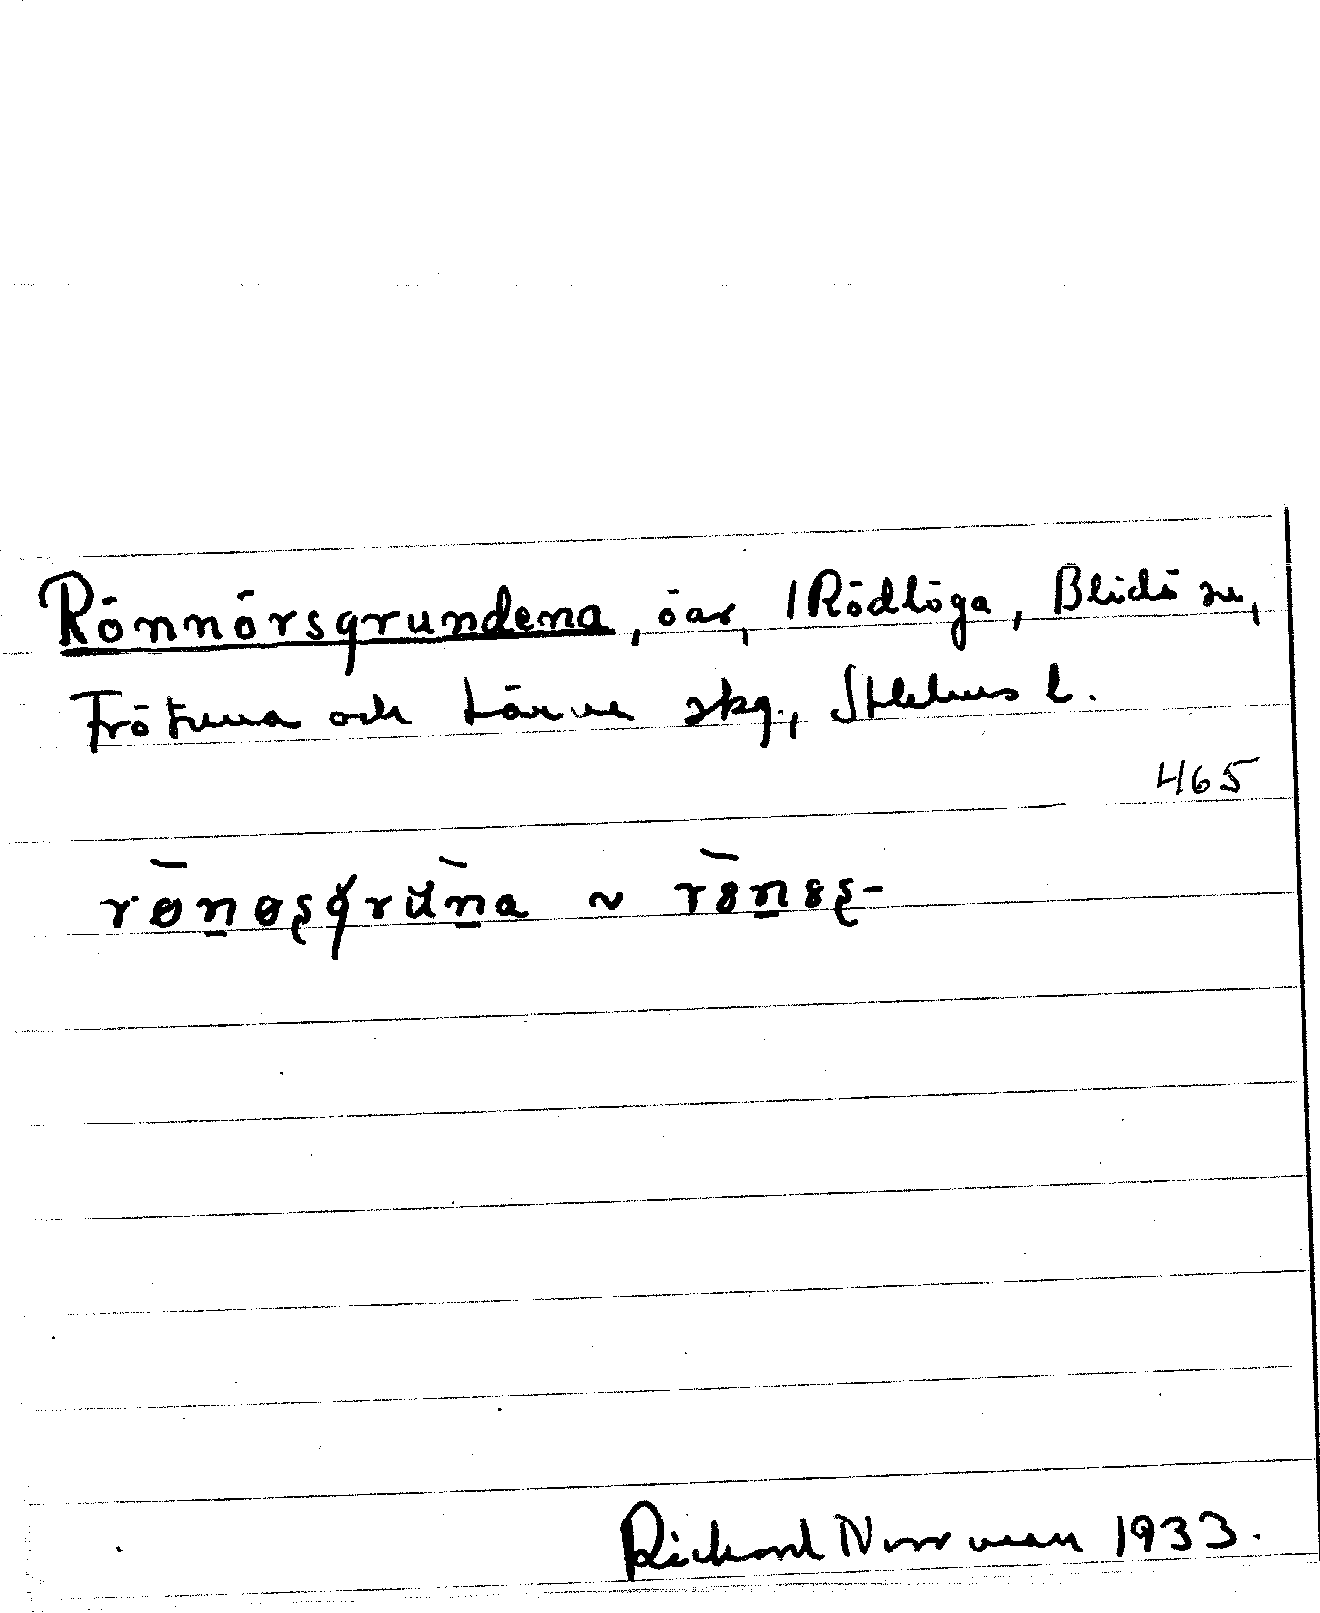 Rönnörsgrundena, öar, 1 Rödlöga, Blidö sn,
Frötuna och Länna skg., Sthlms l.
465
rø̄nøsgru̇̄na ~ rȫnös-
Rickard Norrman 1933.